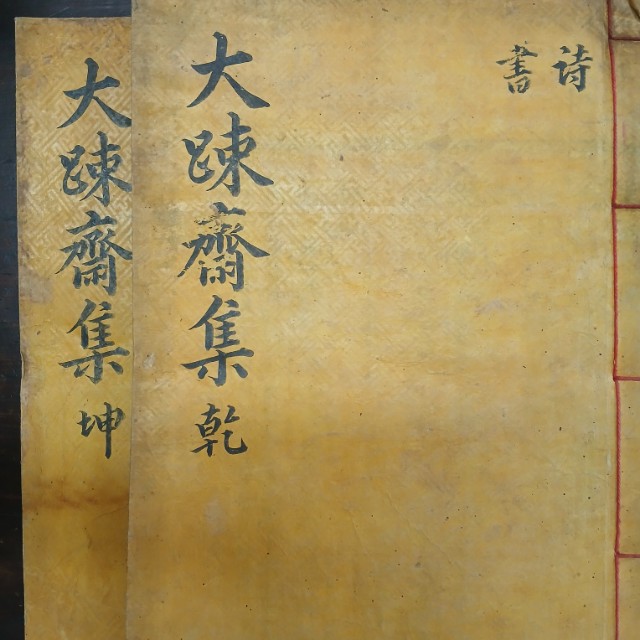 大踈齋集 坤
大踈齋集 乾
詩
書